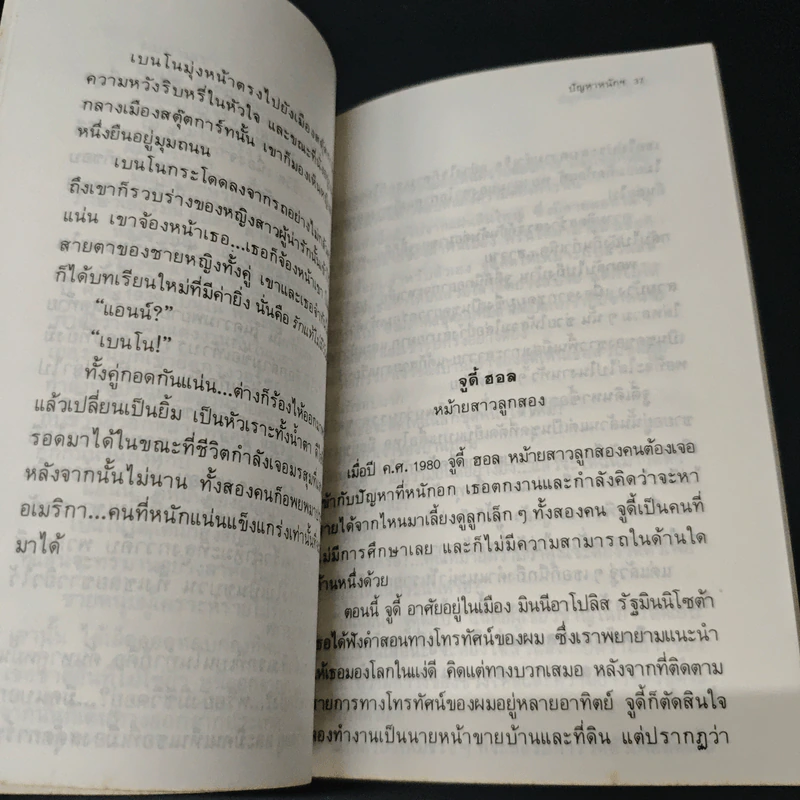 เบนโนมุ่งหน้าตรงไปยังเมือง
ความหวังริบหรี่ในหัวใจ และขณะที่
กลางเมืองสตุ๊ตการ์ทนั้น เขาก็มองเห็น
หนึ่งยืนอยู่มุมถนน
เบนโนกระโดดลงจากรถอย่าง
ถึงเขาก็รวบร่างของหญิงสาวผู้น่ารักนั้น
แน่น เขาจ้องหน้าเธอ...เธอก็จ้องหน้าเขา
สายตาของชายหญิงทั้งคู่ เขาและเธอ
ก็ได้บทเรียนใหม่ที่มีค่ายิ่ง นั่นคือ รักแท้
“แอนน์?”
“เบนโน!”
ทั้งคู่กอดกันแน่น...ต่างก็ร้องไห้ออกมา
แล้วเปลี่ยนเป็นยิ้ม เป็นหัวเราะทั้งน้ำตา
รอดมาได้ในขณะที่ชีวิตกำลังเจอมรสุม
หลังจากนั้นไม่นาน ทั้งสองคนก็อพยพมา
อเมริกา...คนที่หนักแน่นแข็งแกร่งเท่านั้น
มาได้
ปัญหาหนักฯ 37
จูดี้ ฮอล
หม้ายสาวลูกสอง
เมื่อปี ค.ศ. 1980 จูดี้ ฮอล หม้ายสาวลูกสองคนต้องเจอ
เข้ากับปัญหาที่หนักอก เธอตกงานและกำลังคิดว่าจะหา
รายได้จากไหนมาเลี้ยงดูลูกเล็ก ๆ ทั้งสองคน จูดี้เป็นคนที่
ไม่มีการศึกษาเลย และก็ไม่มีความสามารถในด้านใด
ด้านหนึ่งด้วย
ตอนนี้ จูดี้ อาศัยอยู่ในเมือง มินนีอาโปลิส รัฐมินนิโซต้า
เธอได้ฟังคำสอนทางโทรทัศน์ของผม ซึ่งเราพยายามแนะนำ
ให้เธอมองโลกในแง่ดี คิดแต่ทางบวกเสมอ หลังจากที่ติดตาม
รายการทางโทรทัศน์ของผมอยู่หลายอาทิตย์ จูดี้ก็ตัดสินใจ
ลองทำงานเป็นนายหน้าขายบ้านและที่ดิน แต่ปรากฏว่า